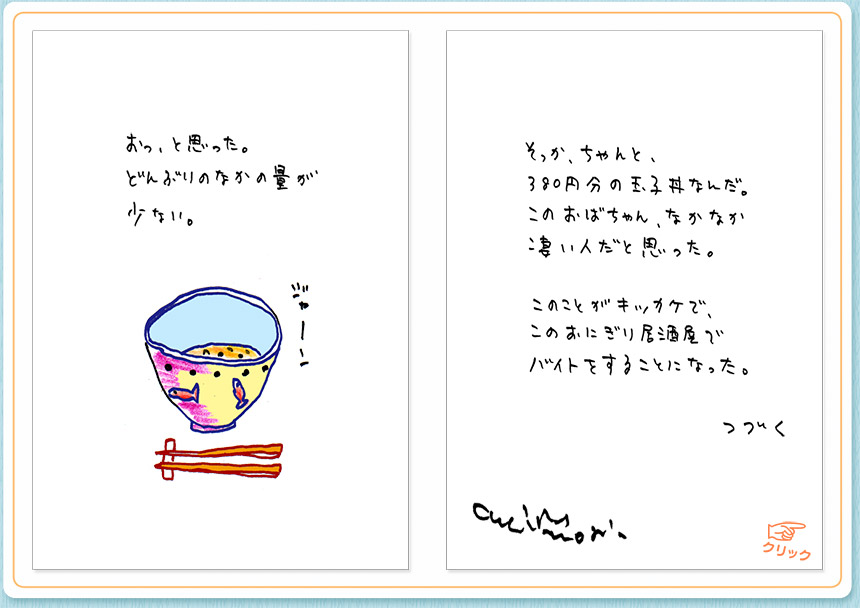 おっ、と思った。
どんぶりのなかの量が
少ない。
ジャーン
そっか、ちゃんと、
380円分の玉子丼なんだ。
このおばちゃん、なかなか
凄い人だと思った。
このことがキッカケで、
このおにぎり居酒屋で
バイトをすることになった。
つづく
クリック